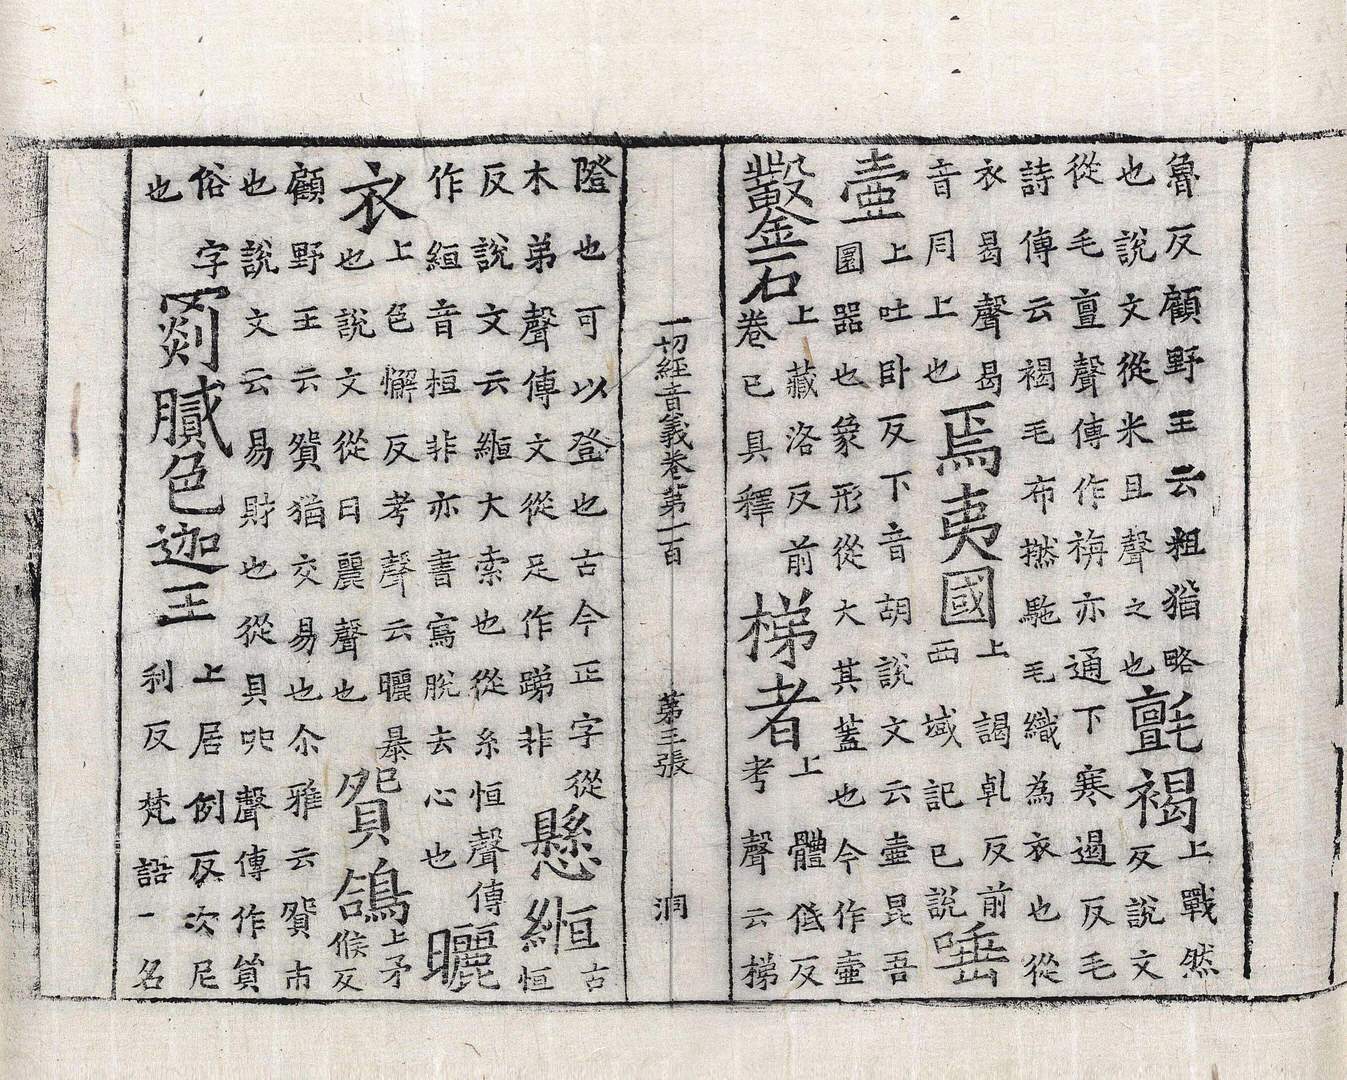 魯反顧野王云粗猶略
也說文從米且聲之也
氈褐
上戰然
反說文
從毛亶聲傳作旃亦通下寒遏反毛
詩傳云褐毛布撚駞毛織為衣也從
衣曷聲曷
音同上也
焉夷國
上謁乹反前
西域記已說
唾
壺
上吐卧反下音胡說文云壷昆吾
圜器也象形從大其蓋也今作壷
鑿石
上藏洛反前
卷已具釋
梯者
上體低反
考聲云梯
一切經音義卷第一百 第三張 洞
隥也可以登也古今正字從
木弟聲傳文從足作踶非
懸縆
古
恒
反說文云縆大索也從糸恒聲傳
作絚音桓非亦書寫脫去心也
曬
衣
上色懈反考聲云曬暴
也說文從日麗聲也
貿鴿
上矛
候反
顧野王云貿猶交易也尒雅云貿市
也說文云易財也從貝戼聲傳作貿
俗字
也
罽膩色迦王
上居例反次尼
利反梵語一名